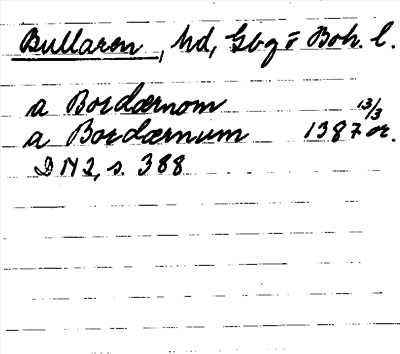 Bullaren, hd, Gbg o Boh. l.
a Bordærnom 13/3
a Bordærnum 1387 or.
DN 2, s. 388